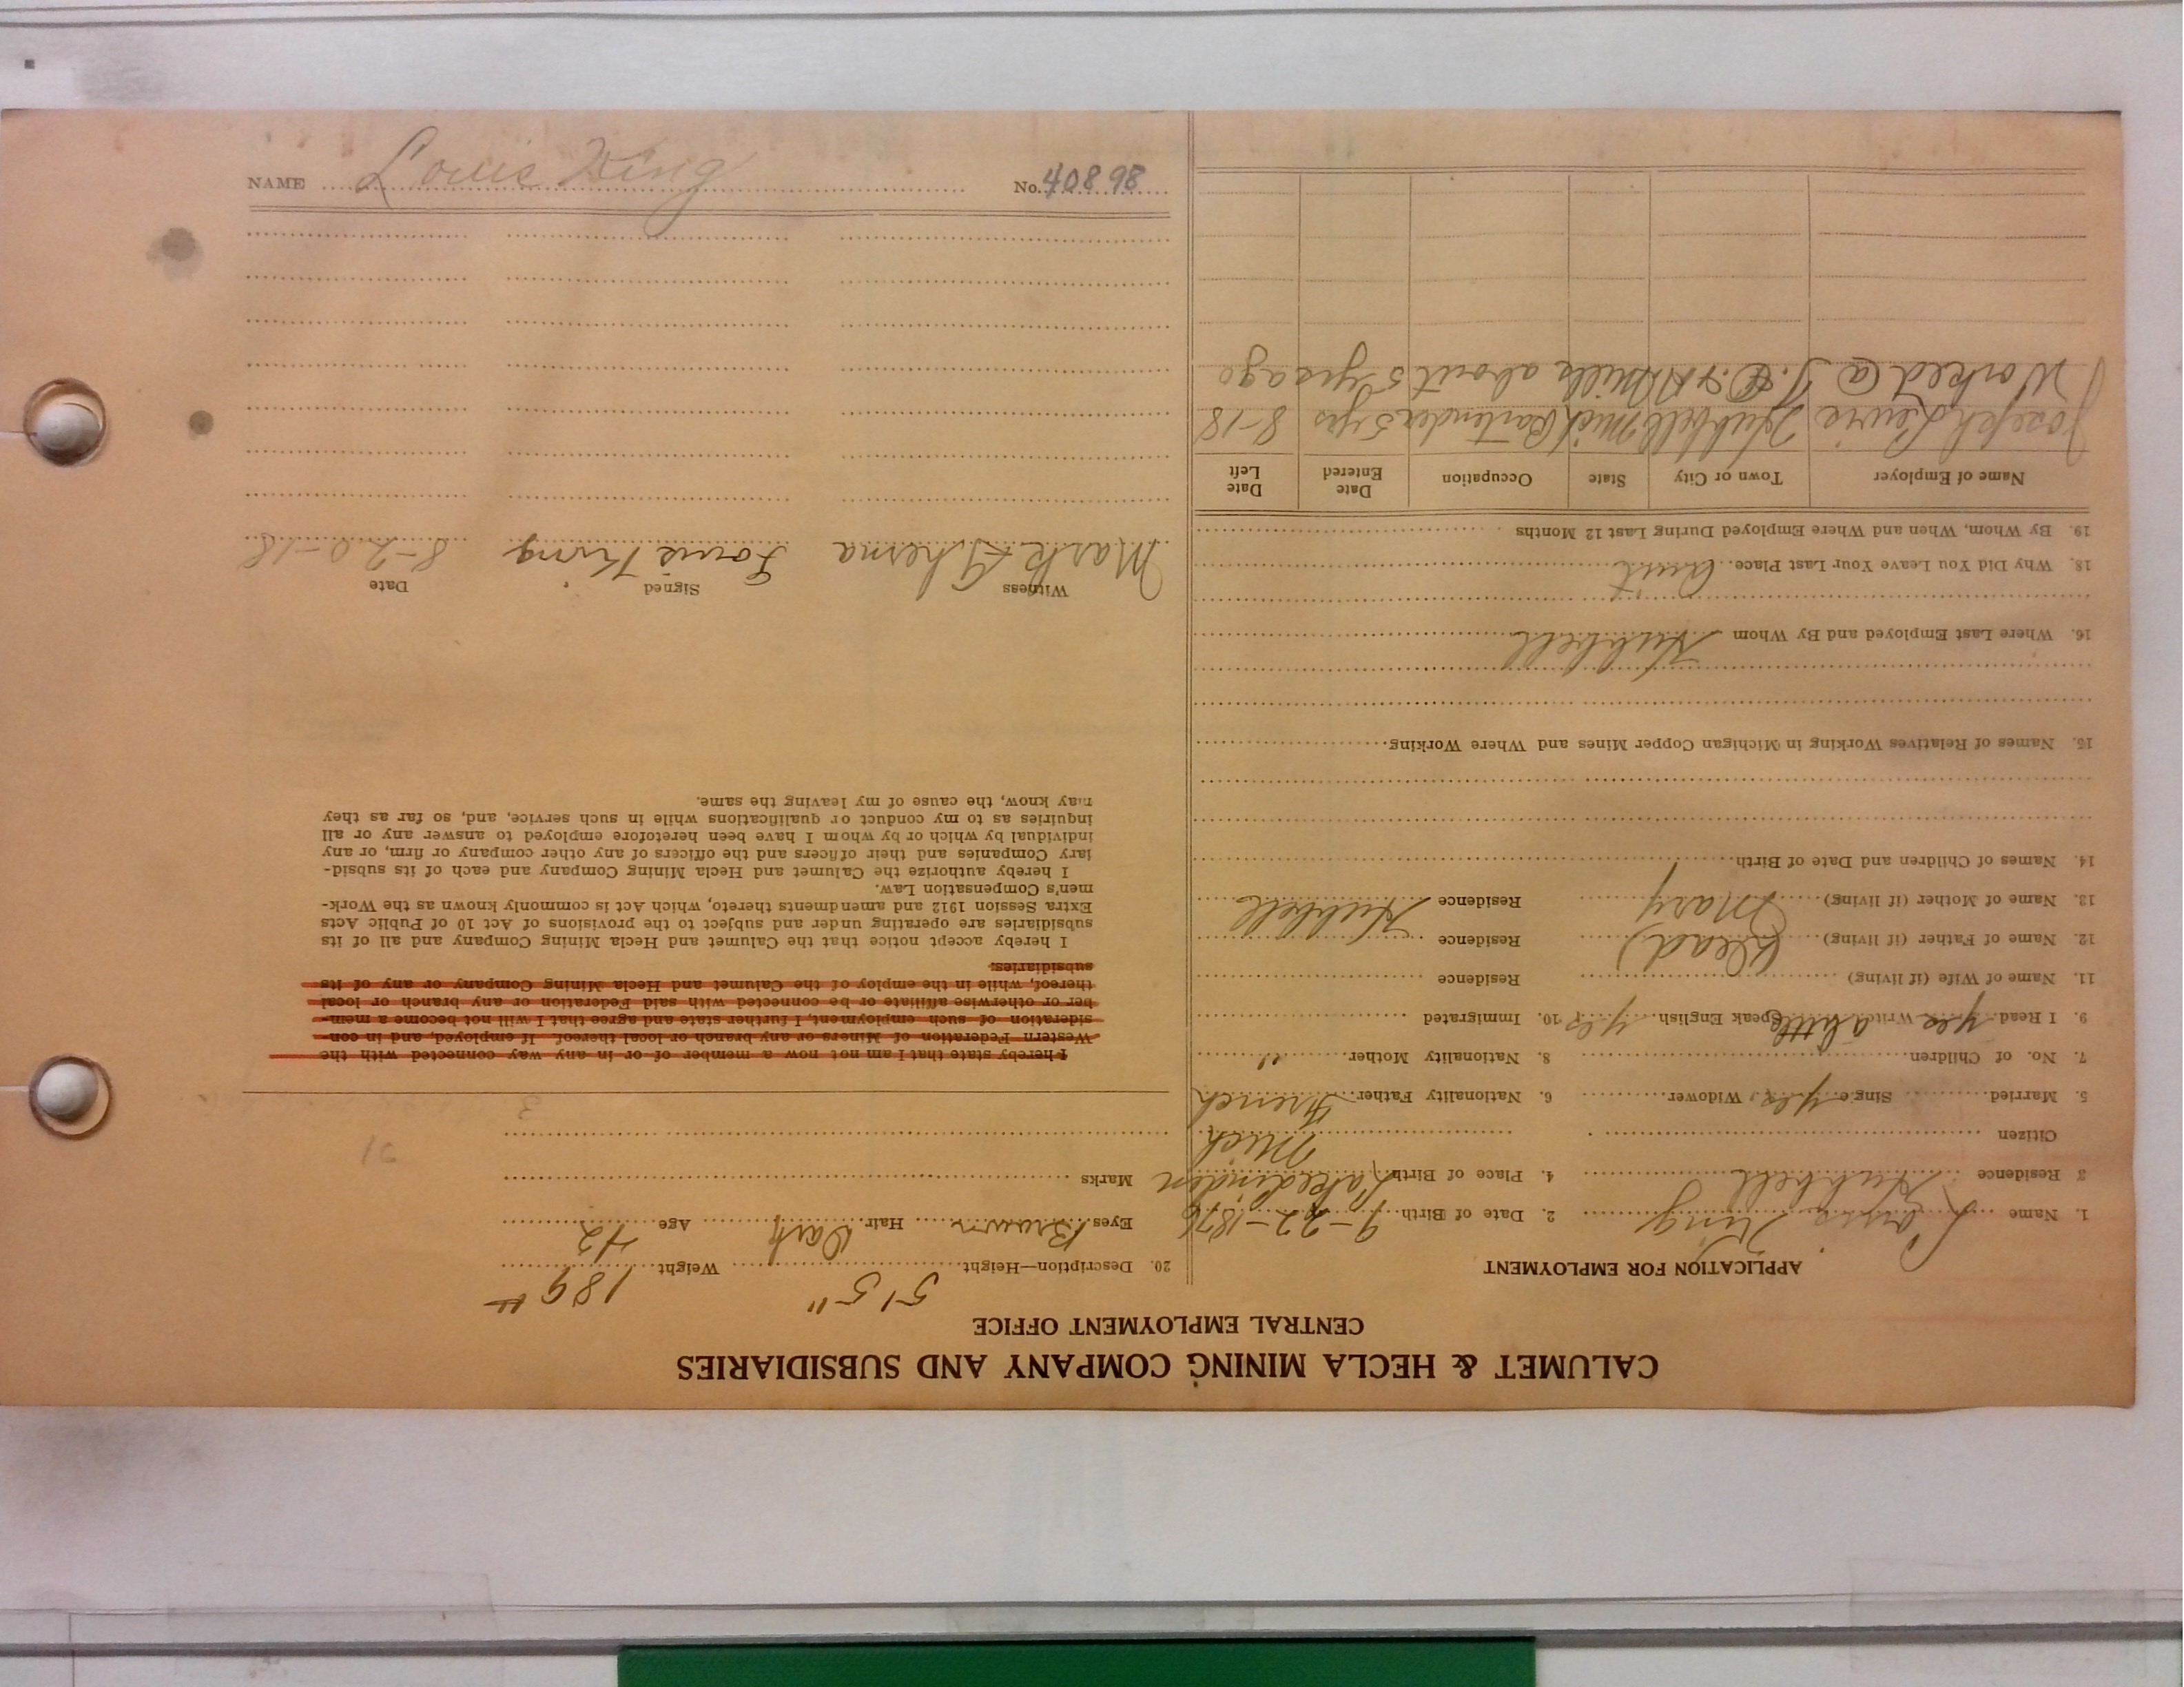 CALUMET & HECLA MINING COMPANY AND SUBSIDIARIES
CENTRAL EMPLOYMENT OFFICE
APPLICATION FOR EMPLOYMENT
1. Name Louis King 2. Date of Birth 9-22-1876
3 Residence Hubbell 4. Place of Birth Lakelinden
Citizen Mich
5. Married Sing.e yes Widower 6. Nationality Father French
7. No. of Children 8. Nationality Mother "
9. I Read yes Write a little Speak English yes 10. Immigrated
11. Name of Wife (if living) Residence
12. Name of Father (if living) (Dead) Residence
13. Name of Mother (if living) Mary Residence Hubbell
14. Names of Children and Date of Birth
15. Names of Relatives Working in Michigan Copper Mines and Where Working
16. Where Last Employed and By Whom Hubbell
18. Why Did You Leave Your Last Place Quit
19. By Whom, When and Where Employed During Last 12 Months
Name of Employer Town or City State Occupation Date Entered Date Left
Joseph Lewis Hubbell Mich Bartender 5 yrs 8-18
Worked @ Mills about 5 yrs ago
20. Description—Height 5'5" Weight 189 #
Eyes Brown Hair Dark Age 42
Marks
21
3
I hereby state that I am not now a member of or in any way connected with the
Western Federation of Miners or any branch or local thereof. If employed, and in con-
sideration of such employment, I further state and agree that I will not become a mem-
ber or otherwise affiliate or be connected with said Federation or any branch or local
thereof, while in the employ of the Calumet and Hecla Mining Company or any of its
subsidiaries.
I hereby accept notice that the Calumet and Hecla Mining Company and all of its
subsidiaries are operating under and subject to the provisions of Act 10 of Public Acts
Extra Session 1912 and amendments thereto, which Act is commonly known as the Work-
men's Compensation Law.
I hereby authorize the Calumet and Hecla Mining Company and each of its subsid-
iary Companies and their officers and the officers of any other company or firm, or any
individual by which or by whom I have been heretofore employed to answer any or all
inquiries as to my conduct or qualifications while in such service, and, so far as they
may know, the cause of my leaving the same.
Witness Signed Date
Mark Louis King 8-20-18
NAME Louis King No. 40898